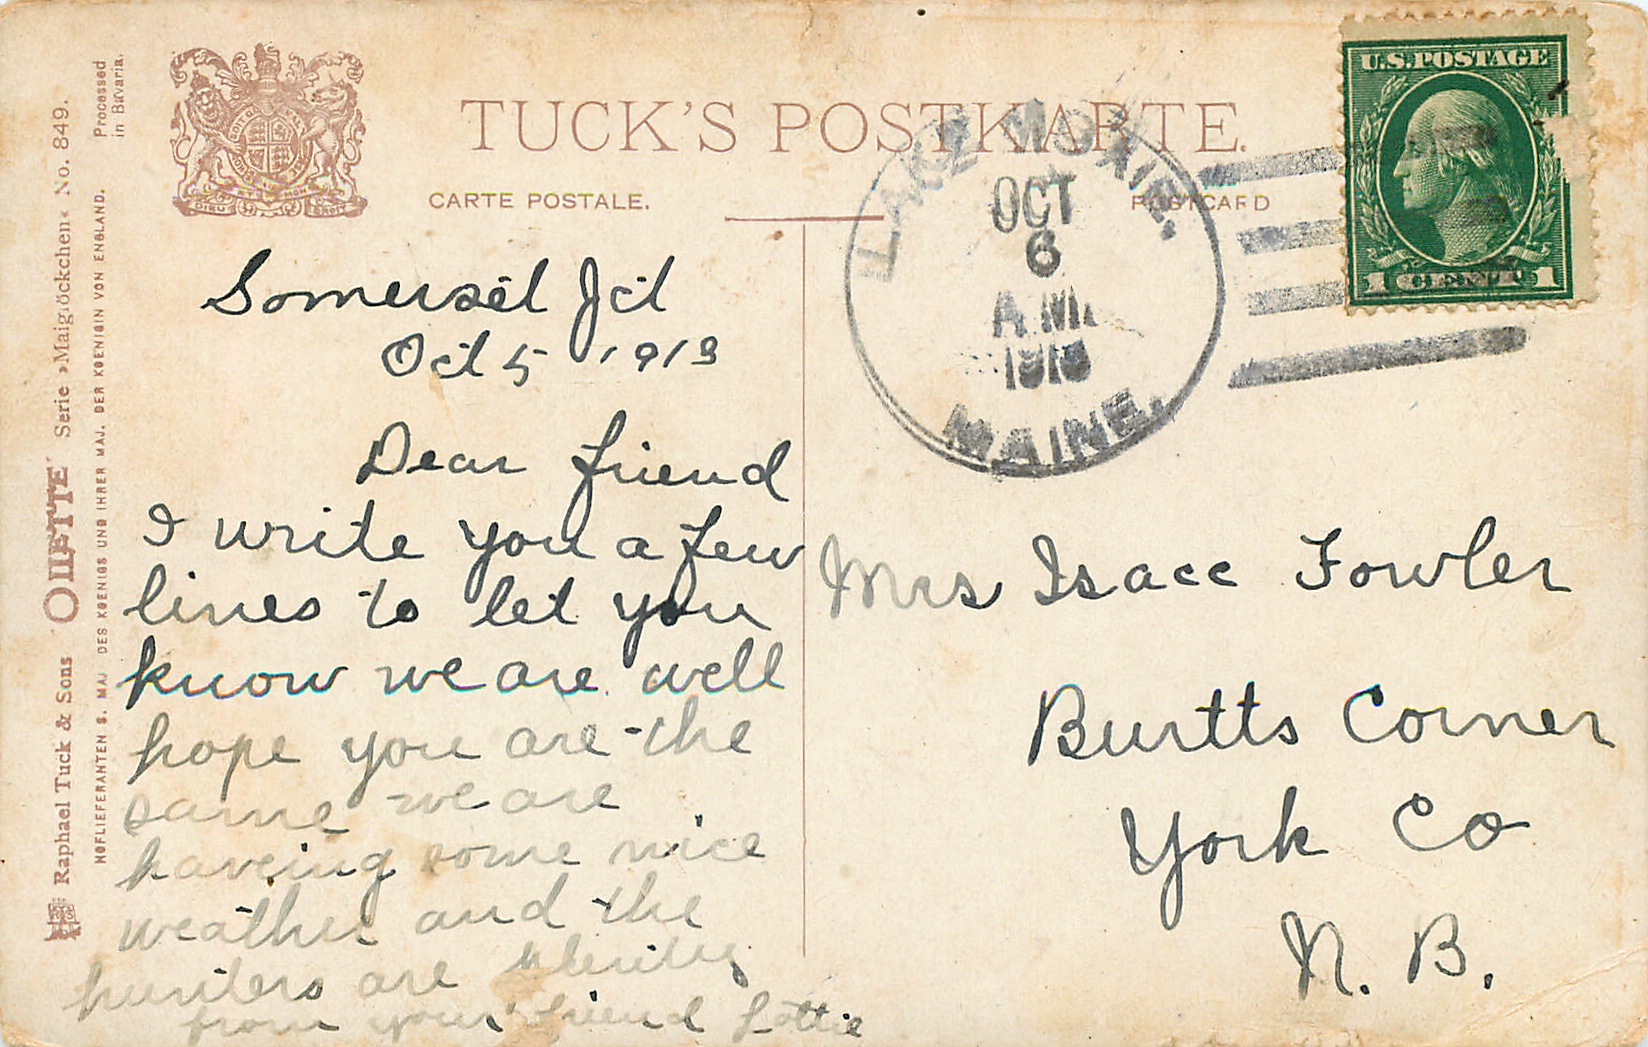 TUCK'S POSTKARTE.
CARTE POSTALE.
POSTCARD
U.S.POSTAGE
1 CENT 1
LAKE MOXIE,
OCT
6
A M
1913
MAINE.
Processed
in Bavaria.
Raphael Tuck & Sons OILETTE Serie »Maiglöckchen« No. 849.
HOFLIEFERANTEN S. MAJ. DES KOENIGS UND IHRER MAJ. DER KOENIGIN VON ENGLAND.
DIEU ET MON DROIT
Somerset Jct
Oct 5 1913
Dear friend
I write you a few
lines to let you
know we are well
hope you are the
same we are
haveing some nice
weather and the
hunters are plenty
from your friend Lottie
Mrs Isacc Fowler
Burtts Corner
York Co
N. B.